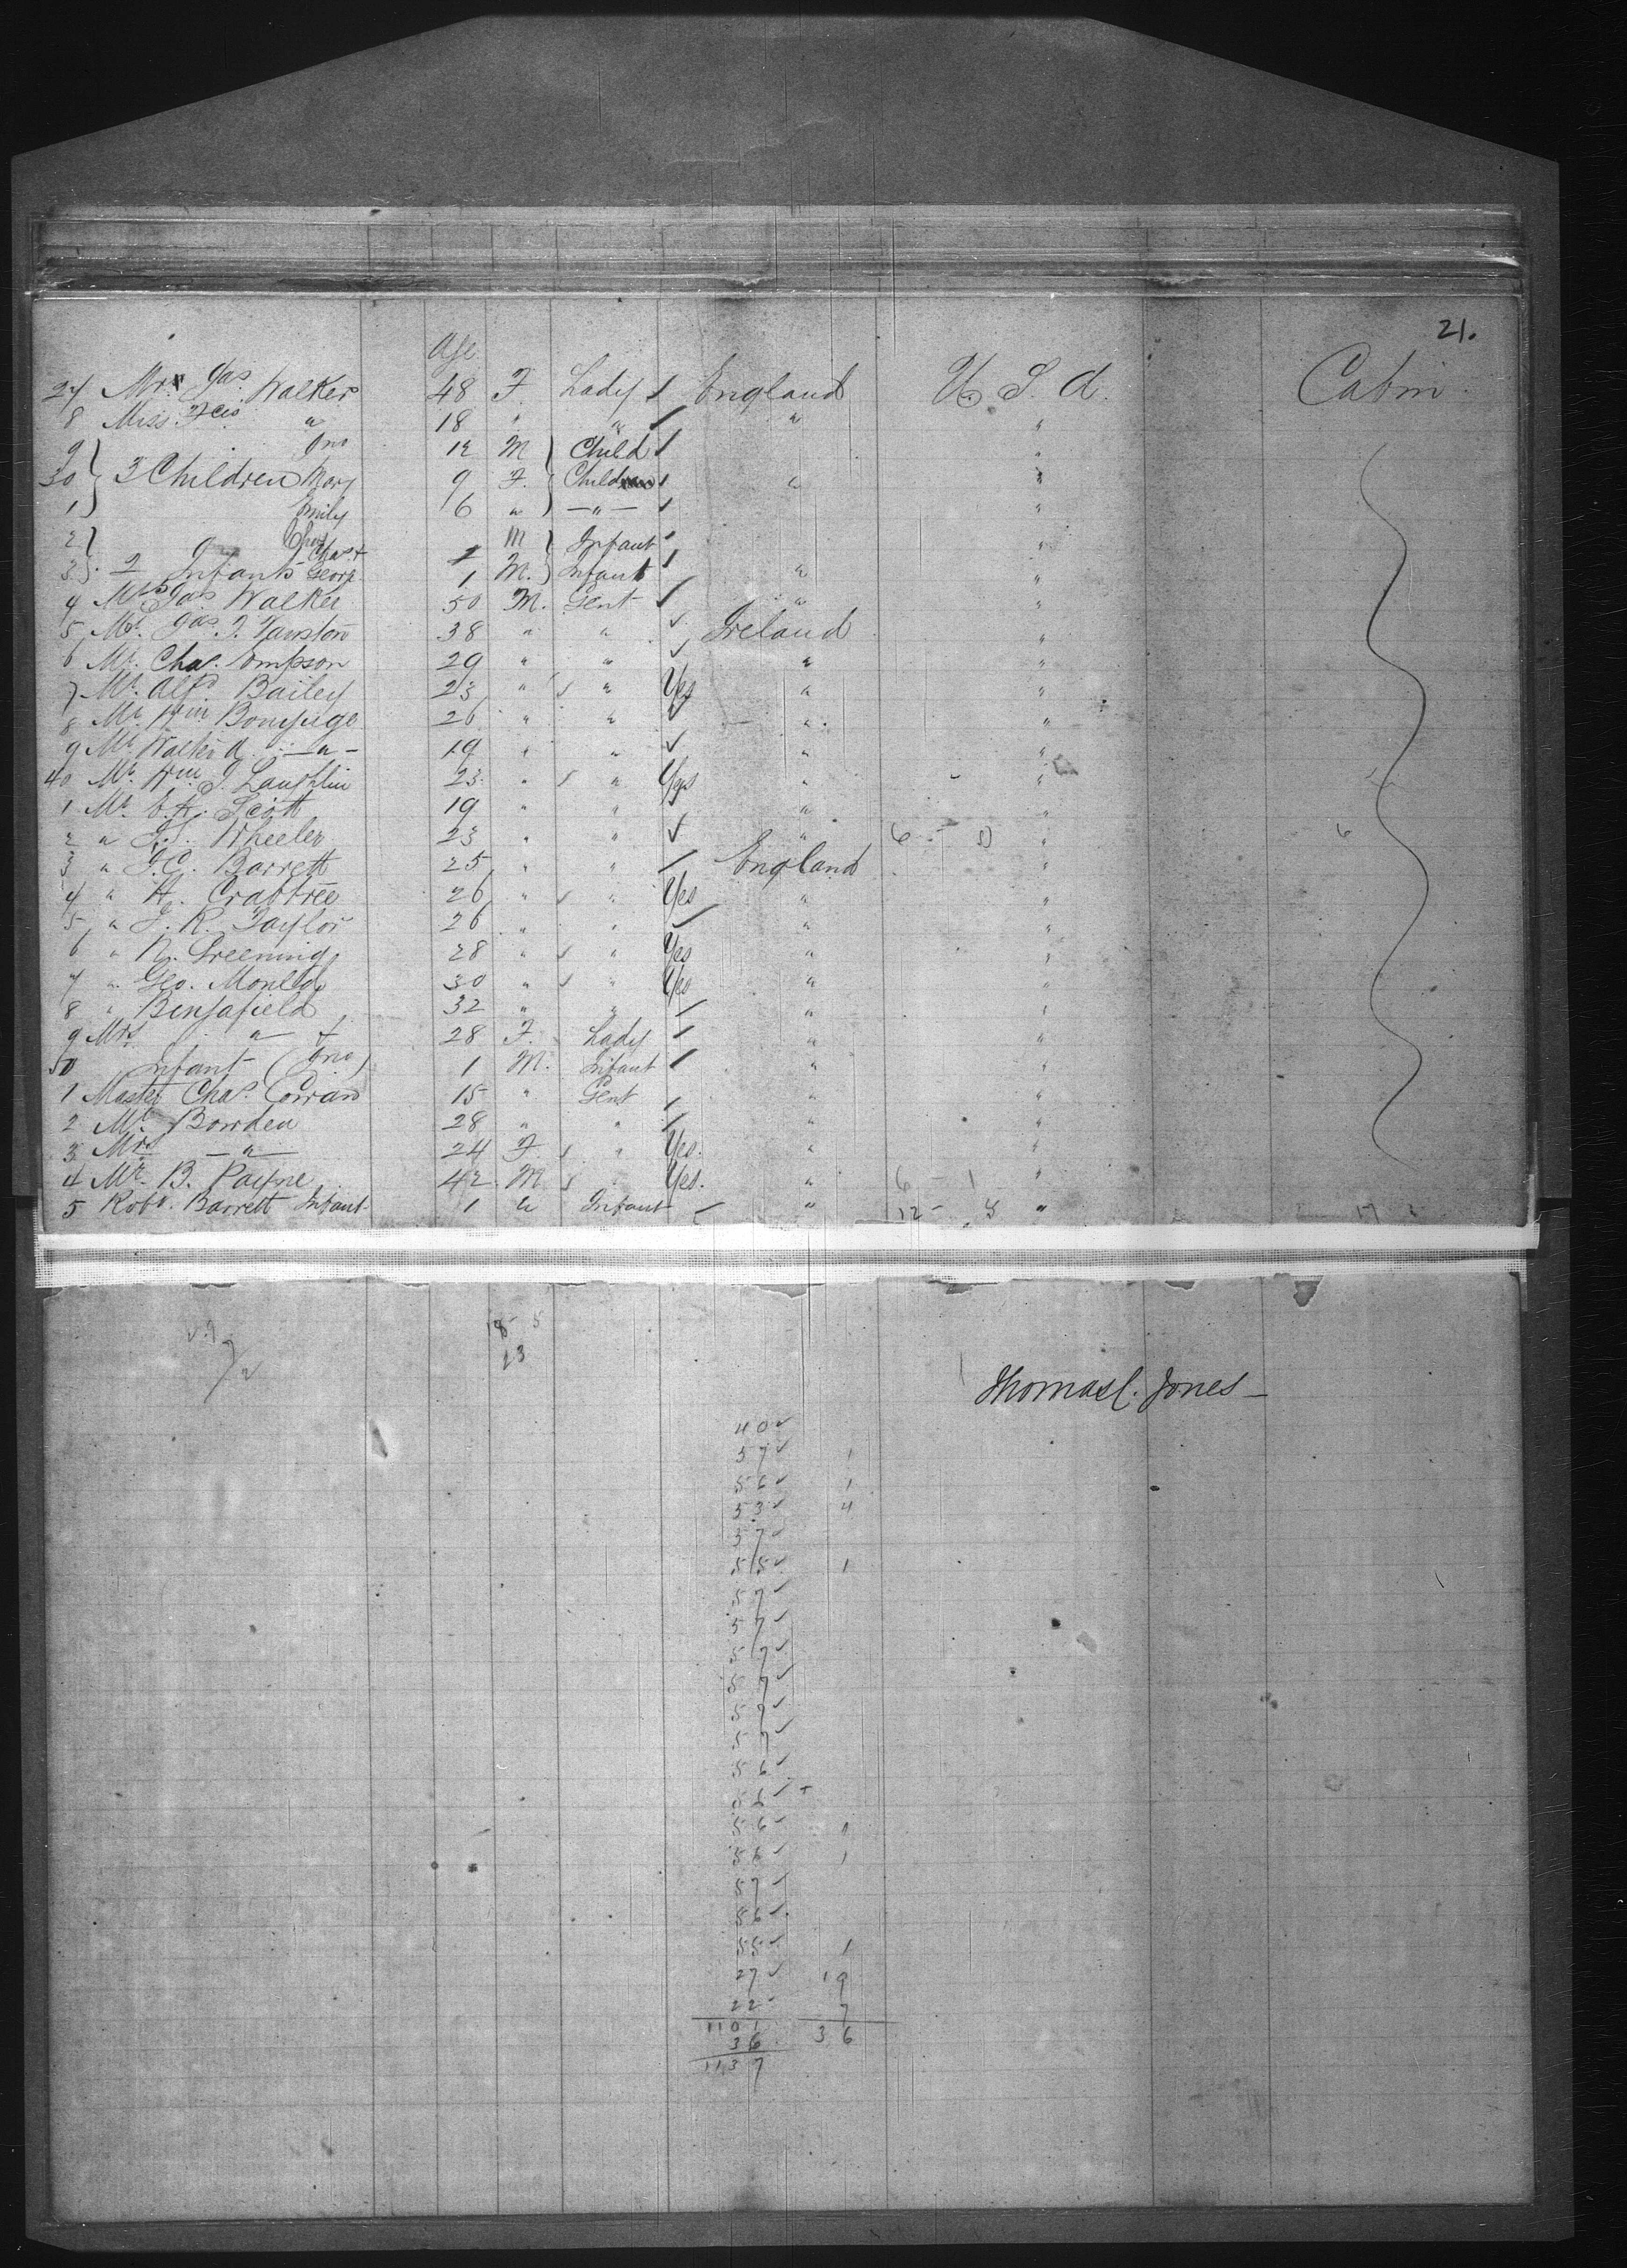 21.
Age
27 Mrs Jas. Walker 48 F. Lady / England U. S. A. Cabin
8 Miss Fcis " 18 " " / " "
9 } Jno 12 M } Child / "
30 } 3 Children Mary 9 F. } Child / " "
1 } Emily 6 " } — " — / "
2 } Chas M } Infant "
3 } 2 Infants Georg 1 M. } Infant / " "
4 Mr Jas Walker 50 M. Gent / " "
5 Mr. Jas. J. 38 " " ✓ Ireland "
6 Mr. Chas. Compson 29 " " ✓ " "
7 Mr. Alf. Bailey 23 " " Yes " "
8 Mr. Wm 26 " " ✓ " "
9 Mr. Walter A — " — 19 " " ✓ " "
40 Mr. Wm. J. Laughlin 23 " " Yes " "
1 Mr. Scott 19 " " " "
2 " Wheeler 23 " " ✓ " 6 - "
3 " J.C. Barrett 25 " " / England "
4 " H. Crabtree 26 " " Yes " "
5 " J. R. Taylor 26 " " / " "
6 " N. Greening 28 " " Yes " "
7 " Geo. Mould 30 " " Yes " "
8 " Benjafield 32 " " / " "
9 Mrs — " — + 28 F. Lady / " "
50 Infant (Jno) 1 M. Infant / " "
1 Master Chas. Corran 15 " Gent / " "
2 Mr Bowden 28 " " / " "
3 Mrs — " — 24 F. " Yes. " "
4 Mr. B. Payne 42 M. Yes. " 6 - 1 "
5 Robt. Barrett Infant 1 " Infant " 12 - 8 " 17
18 5
13
Thomas C. Jones
40 ✓
57 ✓ 1
56 ✓ 1
53 ✓ 4
57 ✓
55 ✓ 1
57 ✓
57 ✓
57 ✓
57 ✓
57 ✓
57 ✓
56 ✓
56 ✓
56 ✓ 1
56 ✓ 1
57 ✓
56 ✓
55 ✓ 1
27 ✓ 19
22 7
1101 36
36
1137